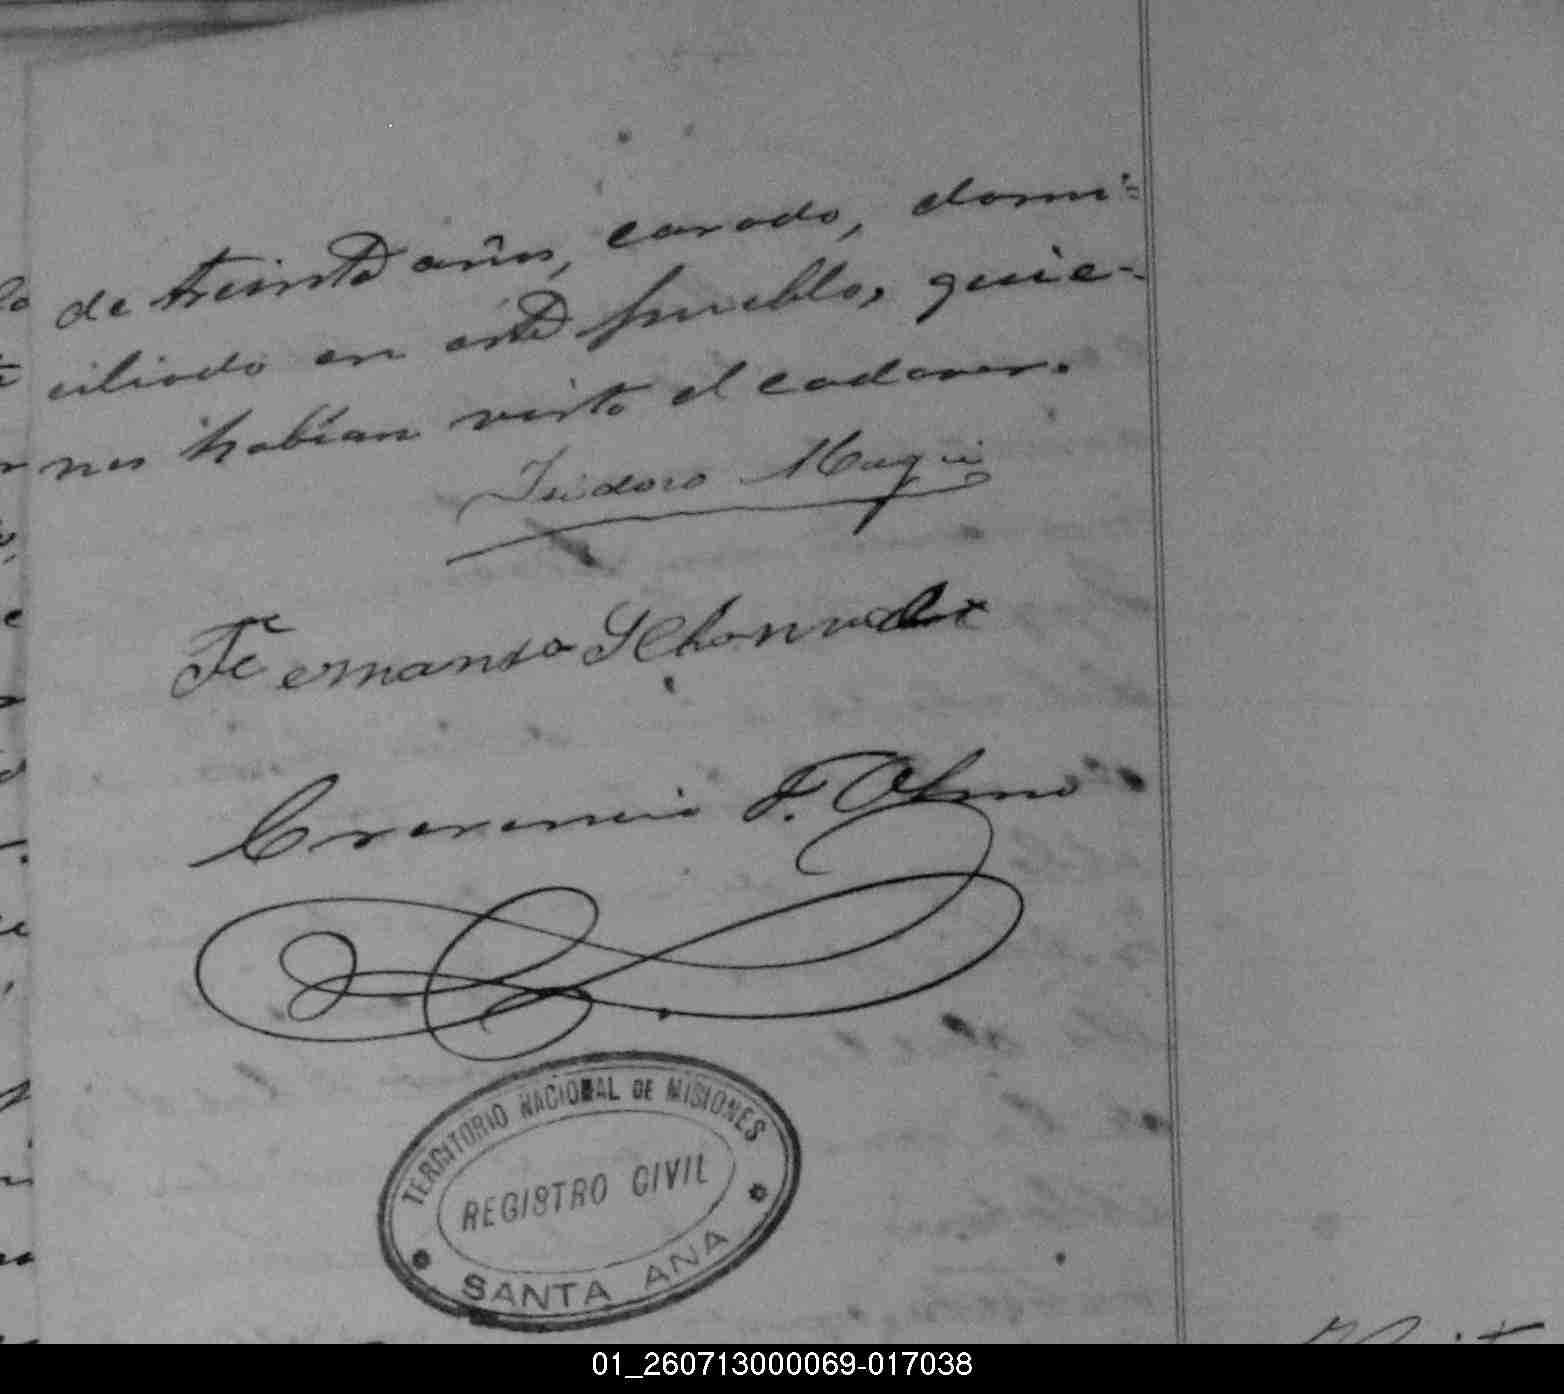 de treinta años, casado, domi-
ciliado en este pueblo, quie-
nes habían visto el cadaver.
Isidoro
Fernando
F. Olmo
TERRITORIO NACIONAL DE MISIONES
REGISTRO CIVIL
SANTA ANA
01_260713000069-017038